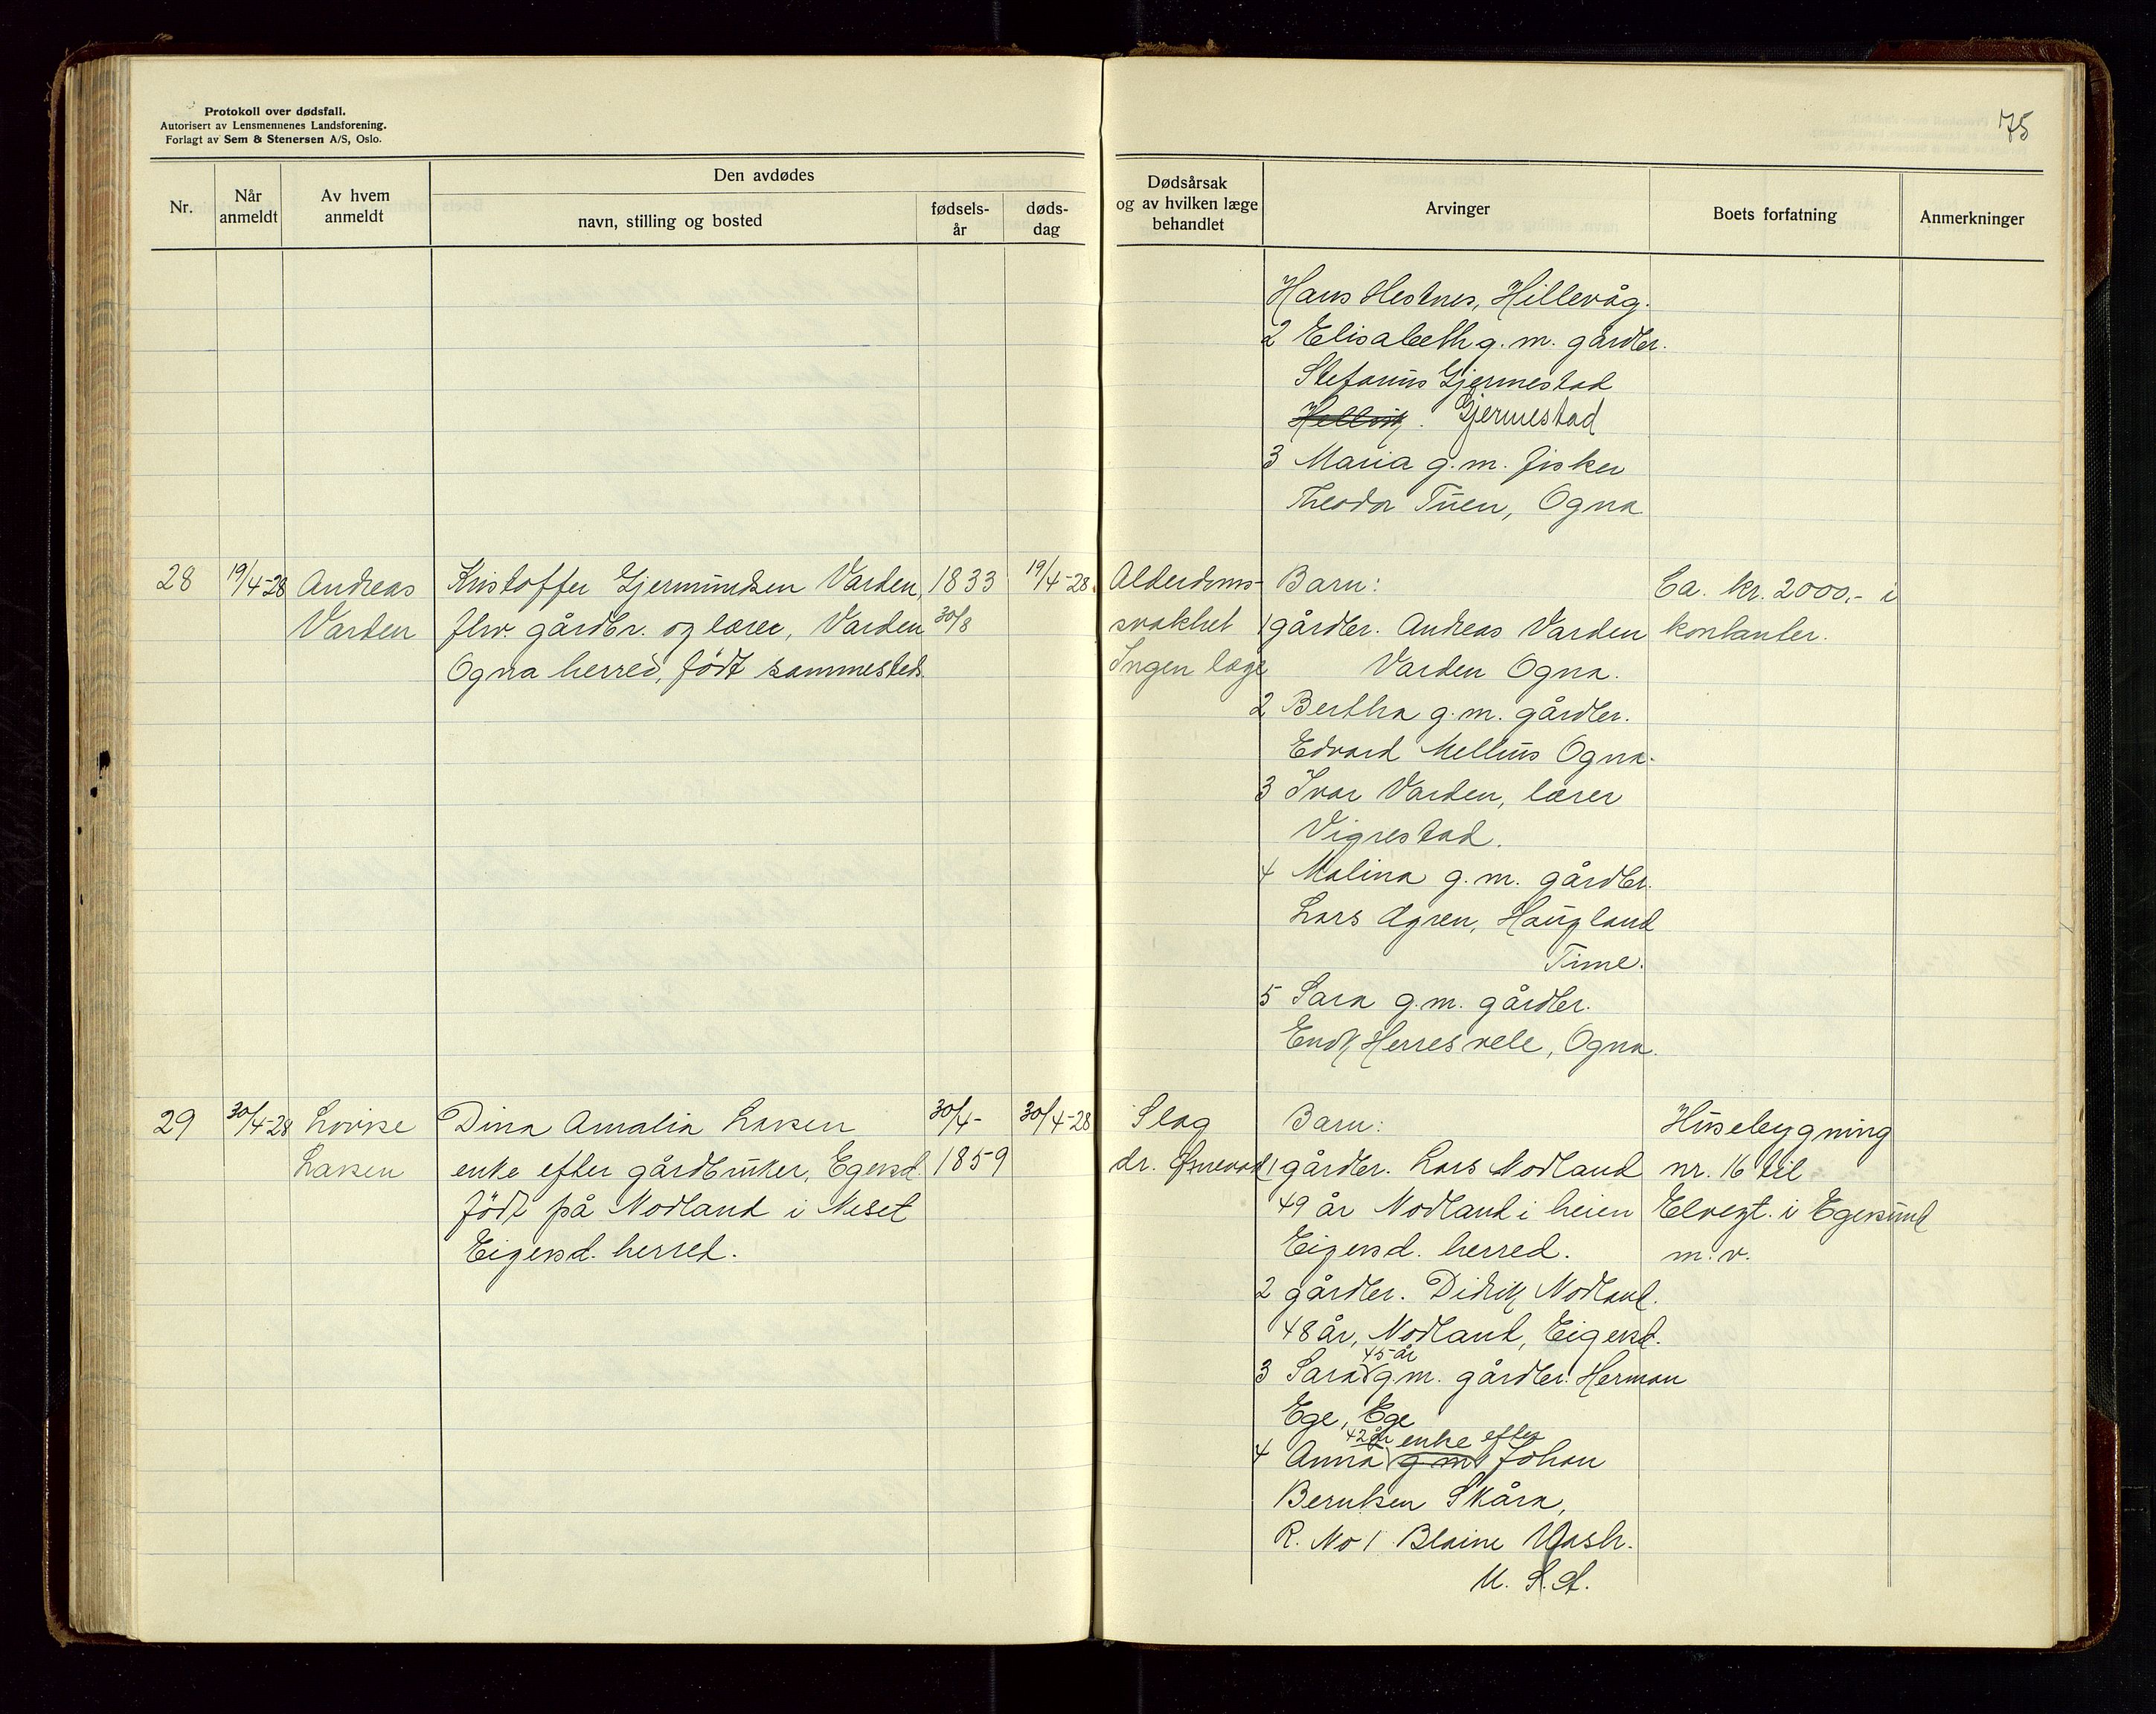 Protokoll over dødsfall.
Autorisert av Lensmennenes Landsforening.
Forlagt av Sem & Stenersen A/S, Oslo.
75
Nr.
Når anmeldt
Av hvem anmeldt
Den avdødes
navn, stilling og bosted
fødsels-år
døds-dag
Dødsårsak og av hvilken læge behandlet
Arvinger
Boets forfatning
Anmerkninger
Hans Hestnes, Hillevåg.
2 Elisabeth g. m. gårdbr.
Stefanus Gjermestad
Hellvik. Gjermestad
3 Maria g. m. fisker
Theodor Tuen, Ogna
28 19/4-28 Andreas Kristoffer Gjermundsen Varden, 1833 19/4-28. Alderdoms- Barn: Ca. kr. 2000,- i
Varden fhv. gårdbr. og lærer, Varden 30/8 svakhet 1 gårdbr. Andreas Varden kontanter.
Ogna herred, födt sammesteds. Ingen læge Varden Ogna.
2 Bertha g. m. gårdbr.
Edvard Mellus Ogna.
3 Ivar Varden, lærer
Vigrestad.
4 Malina g. m. gårdbr.
Lars Ågren, Haugland
Time.
5 Sara g. m. gårdbr.
Endk Herresvele, Ogna.
29 30/4-28 Lovise Dina Amalia Larsen 30/4- 30/4-28 Slag Barn: Husebygning
Larsen enke efter gårdbruker, Egersd. 1859 dr. 1 gårdbr. Lars Nodland nr. 16 til
födt på Nodland i Neset 49 år Nodland i heien Elvegt. i Egersund
Eigersd. herred. Eigersd. herred. m. v.
2 gårdbr. Didrik Nodland.
48 år, Nodland, Eigersd.
45 år
3 Sara g.m. gårdbr. Herman
Ege, Ege
42 år enke efter
4 Anna g m Johan
Berntsen Skåra,
R. No 1 Blaine Wash.
U. S. A.